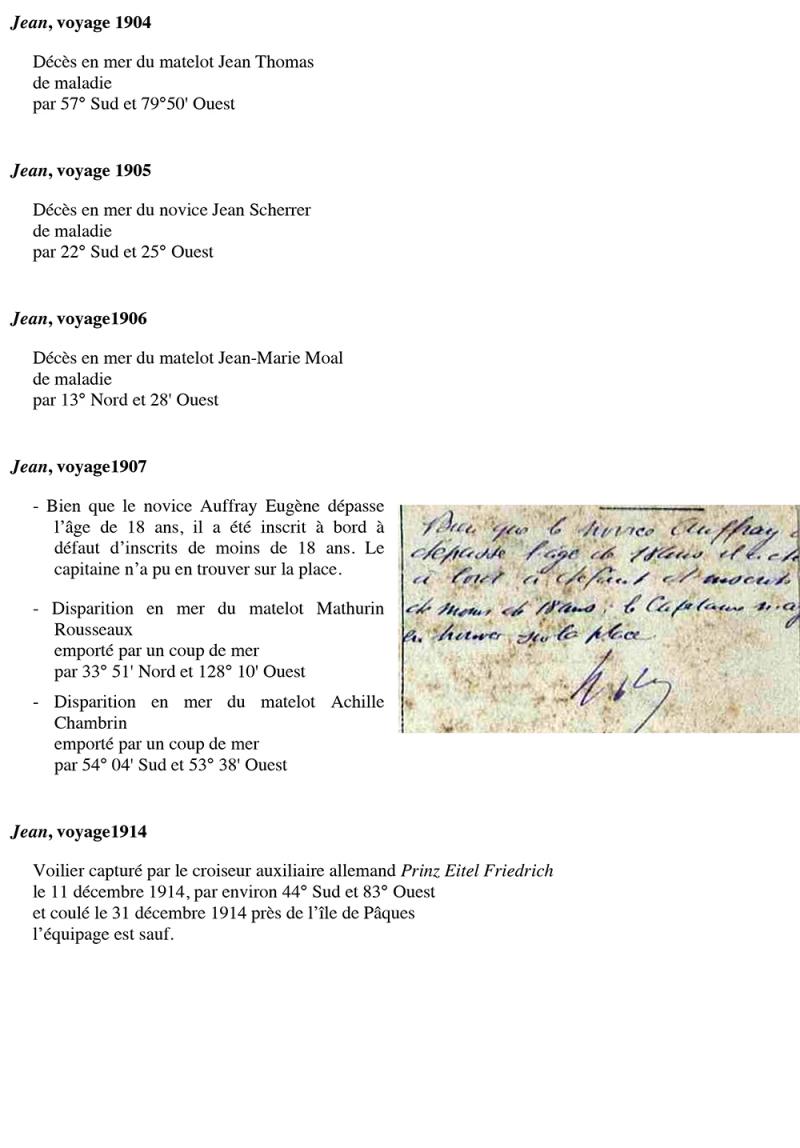 Jean, voyage 1904
Décès en mer du matelot Jean Thomas
de maladie
par 57° Sud et 79°50' Ouest
Jean, voyage 1905
Décès en mer du novice Jean Scherrer
de maladie
par 22° Sud et 25° Ouest
Jean, voyage1906
Décès en mer du matelot Jean-Marie Moal
de maladie
par 13° Nord et 28' Ouest
Jean, voyage1907
- Bien que le novice Auffray Eugène dépasse
l’âge de 18 ans, il a été inscrit à bord à
défaut d’inscrits de moins de 18 ans. Le
capitaine n’a pu en trouver sur la place.
- Disparition en mer du matelot Mathurin
Rousseaux
emporté par un coup de mer
par 33° 51' Nord et 128° 10' Ouest
- Disparition en mer du matelot Achille
Chambrin
emporté par un coup de mer
par 54° 04' Sud et 53° 38' Ouest
Bien que le novice Auffray
dépasse l'age de 18 ans il a été
a bord a defaut d'inscrits
de moins de 18 ans ; le Capitaine n'a
en trouver sur la place
Jean, voyage1914
Voilier capturé par le croiseur auxiliaire allemand Prinz Eitel Friedrich
le 11 décembre 1914, par environ 44° Sud et 83° Ouest
et coulé le 31 décembre 1914 près de l’île de Pâques
l’équipage est sauf.